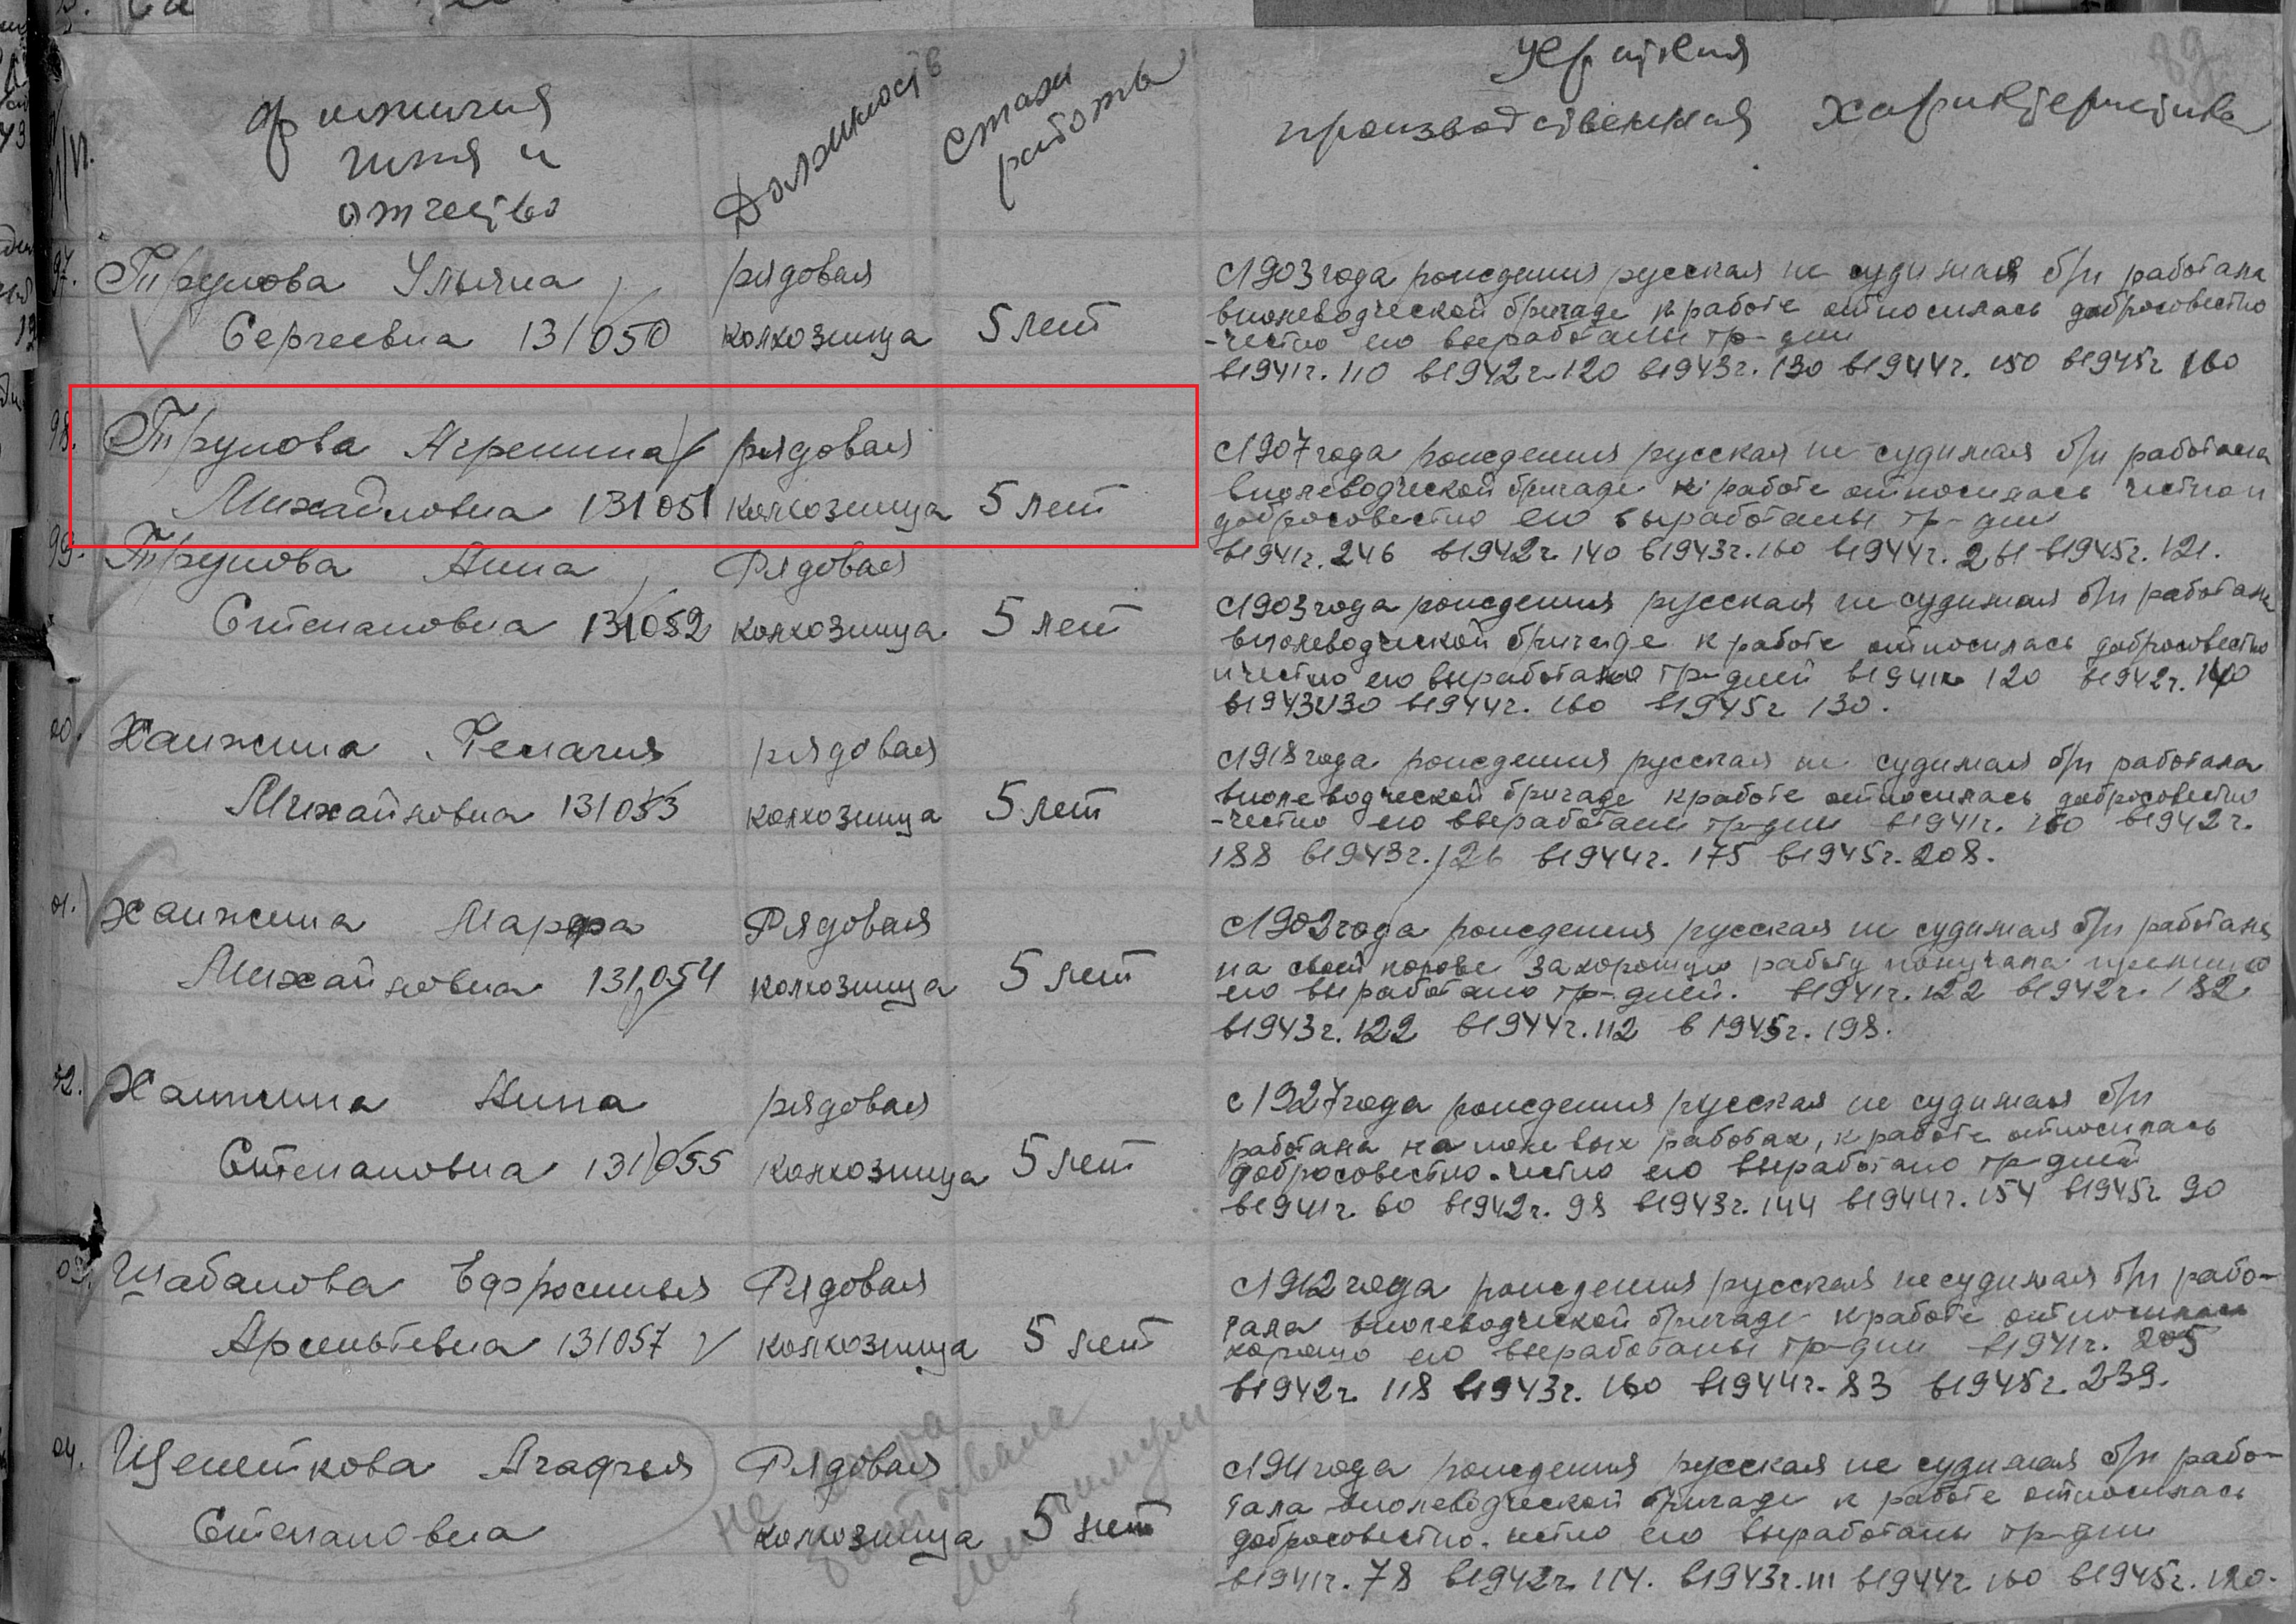 фамилия
имя и
отчество
Должность
Стаж
работы
Краткая
производственная характеристика
89
97. Трунова Ульяна рядовая
Сергеевна 131050 колхозница 5 лет
с 1903 года рождения русская не судимая б/п работала
в полеводческой бригаде к работе относилась добросовестно
-честно ею выработаны тр-дни
в 1941г. 110 в 1942г. 120 в 1943г. 130 в 1944г. 150 в 1945г 160
98. Трунова Агрепина рядовая
Михайловна 131051 колхозница 5 лет
с 1907 года рождения русская не судимая б/п работала
в полеводческой бригаде к работе относилась честно и
добросовестно ею выработаны тр-дни
в 1941г. 246 в 1942г. 140 в 1943г. 160 в 1944г. 261 в 1945г. 121.
99. Трунова Анна Рядовая
Степановна 131052 колхозница 5 лет
с 1903 года рождения русская не судимая б/п работала
в полеводческой бригаде к работе относилась добросовестно
и честно ею выработано тр-дней в 1941г 120 в 1942г. 140
в 1943г 130 в 1944г. 160 в 1945г 130.
00. Ханжина Пелагия рядовая
Михайловна 131053 колхозница 5 лет
с 1918 года рождения русская не судимая б/п работала
в полеводческой бригаде к работе относилась добросовестно
-честно ею выработаны тр-дни в 1941г. 160 в 1942г.
188 в 1943г. 126 в 1944г. 175 в 1945г. 208.
01. Ханжина Марфа Рядовая
Михайловна 131054 колхозница 5 лет
с 1902 года рождения русская не судимая б/п работала
на своей корове за хорошую работу получала премию
ею выработано тр-дней. в 1941г. 122 в 1942г. 182.
в 1943г. 122 в 1944г. 112 в 1945г. 198.
02. Ханжина Нина рядовая
Степановна 131055 колхозница 5 лет
с 1927 года рождения русская не судимая б/п
работала на полевых работах, к работе относилась
добросовестно. честно ею выработано тр-дней
в 1941г. 60 в 1942г. 98 в 1943г. 144 в 1944г. 154 в 1945г 90
03. Шабанова Ефросинья Рядовая
Арсентьевна 131057 колхозница 5 лет
с 1912 года рождения русская не судимая б/п рабо-
тала в полеводческой бригаде к работе относилась
хорошо ею выработаны тр-дни в 1941г. 205
в 1942г 118 в 1943г. 160 в 1944г. 83 в 1945г. 239.
04. Щепеткова Агафья Рядовая
Степановна колхозница 5 лет
не
минимум
с 1911 года рождения русская не судимая б/п рабо-
тала в полеводческой бригаде к работе относилась
добросовестно. честно ею выработаны тр-дни
в 1941г. 78 в 1942г. 114. в 1943г. 111 в 1944г 160 в 1945г. 120.